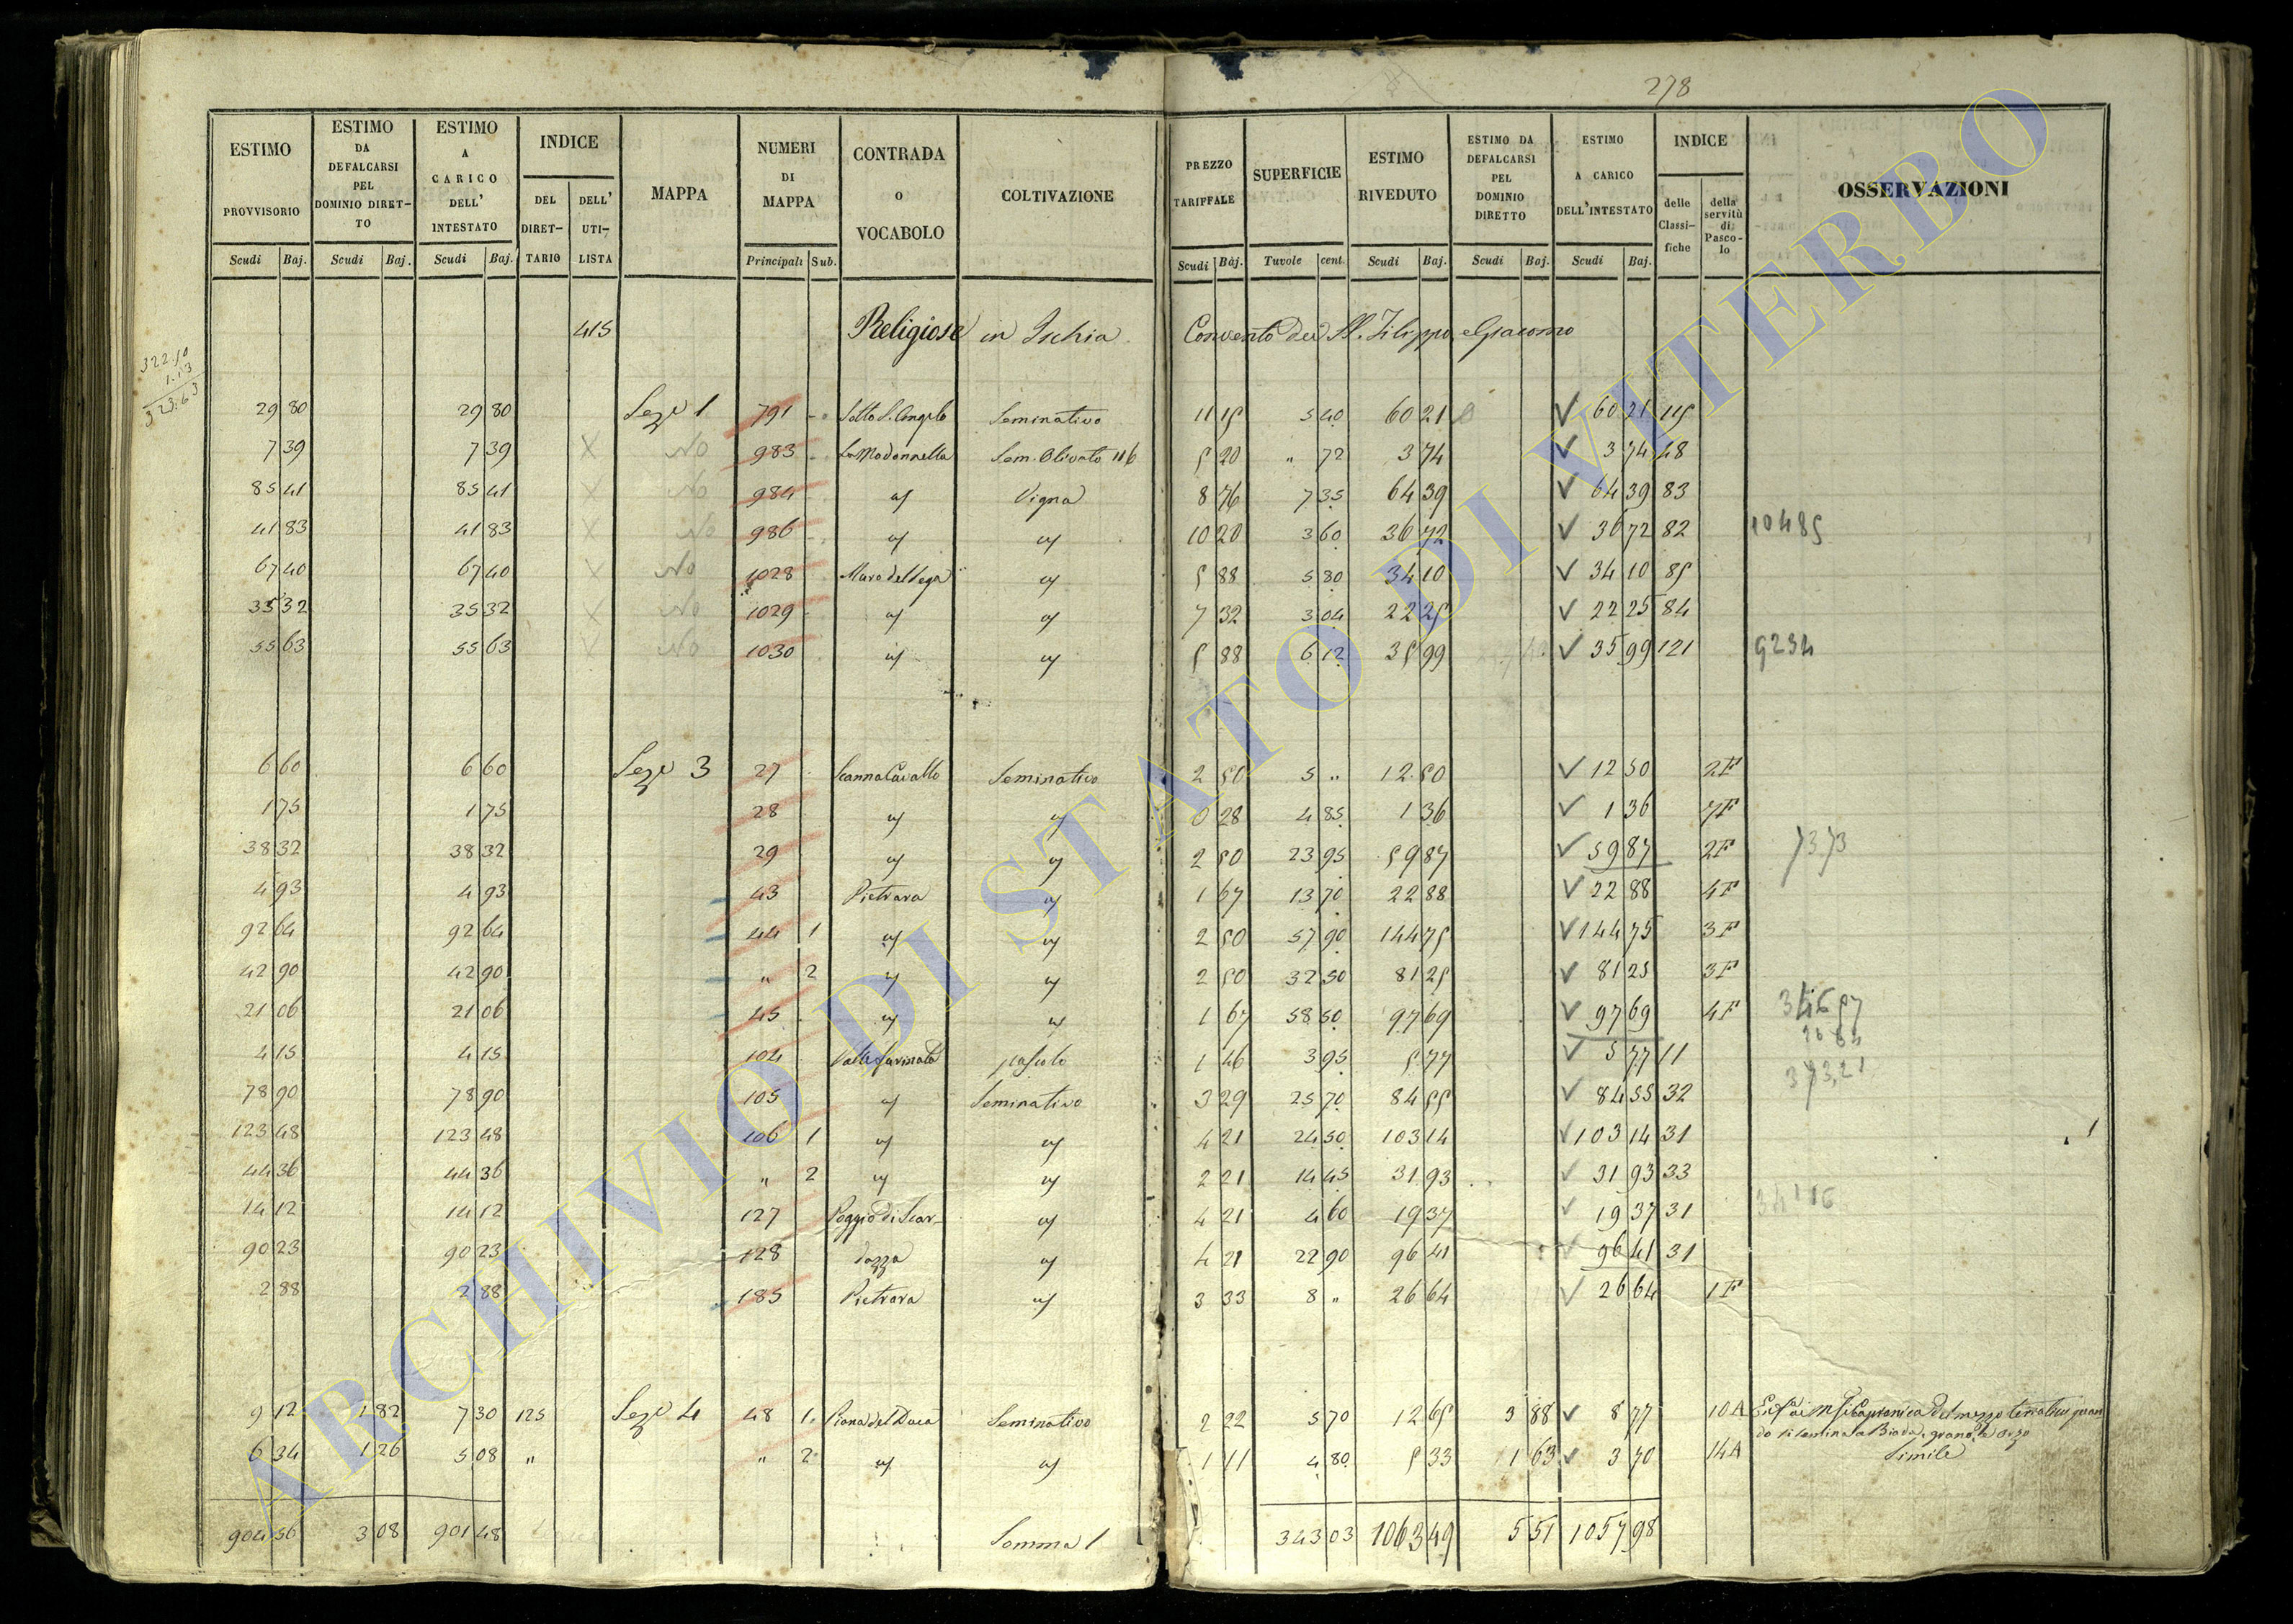 278
ESTIMO PROVVISORIO | ESTIMO DA DEFALCARSI PEL DOMINIO DIRET-TO | ESTIMO A CARICO DELL' INTESTATO | INDICE | MAPPA | NUMERI DI MAPPA | CONTRADA O VOCABOLO | COLTIVAZIONE | PREZZO TARIFFALE | SUPERFICIE | ESTIMO RIVEDUTO | ESTIMO DA DEFALCARSI PEL DOMINIO DIRETTO | ESTIMO A CARICO DELL'INTESTATO | INDICE | OSSERVAZIONI
DEL DIRET-TARIO | DELL' UTI-LISTA | delle Classi-fiche | della servitù di Pasco-lo
Scudi | Baj. | Scudi | Baj. | Scudi | Baj. | Principali | Sub. | Scudi | Baj. | Tavole | cent. | Scudi | Baj. | Scudi | Baj. | Scudi | Baj.
415 Religiose in Ischia Convento dei SS. Filippo e Giacomo
322.50
1.13
323.63
29 80 | 29 80 | Sez.e 1 | 791 | Sotto S. Angelo | Seminativo | 11 15 | 5 40 | 60 21 | 60 21 | 115
7 39 | 7 39 | X | No | 983 | La Madonnella | Sem. Olivato 116 | 5 20 | " 72 | 3 74 | 3 74 | 48
85 41 | 85 41 | X | No | 984 | id | Vigna | 8 76 | 7 35 | 64 39 | 64 39 | 83
41 83 | 41 83 | X | No | 986 | id | id | 10 20 | 3 60 | 36 72 | 36 72 | 82 | 10485
67 40 | 67 40 | X | No | 1028 | id | 5 88 | 5 80 | 34 10 | 34 10 | 85
35 32 | 35 32 | X | No | 1029 | id | id | 7 32 | 3 04 | 22 25 | 22 25 | 84
55 63 | 55 63 | X | No | 1030 | id | id | 5 88 | 6 12 | 35 99 | 35 99 | 121 | 9234
6 60 | 6 60 | Sez.e 3 | 27 | Scanna Cavallo | Seminativo | 2 50 | 5 " | 12 50 | 12 50 | 2F
1 75 | 1 75 | 28 | id | id | 0 28 | 4 85 | 1 36 | 1 36 | 7F
38 32 | 38 32 | 29 | id | id | 2 50 | 23 95 | 59 87 | 59 87 | 2F | 73.73
4 93 | 4 93 | 43 | Pietrara | id | 1 67 | 13 70 | 22 88 | 22 88 | 4F
92 64 | 92 64 | 44 | 1 | id | id | 2 50 | 57 90 | 144 75 | 144 75 | 3F
42 90 | 42 90 | " | 2 | id | id | 2 50 | 32 50 | 81 25 | 81 25 | 3F
21 06 | 21 06 | 45 | id | id | 1 67 | 58 50 | 97 69 | 97 69 | 4F | 346 57
26 64
4 15 | 4 15 | 104 | Valle farinata | pascolo | 1 46 | 3 95 | 5 77 | 5 77 | 11
373,21
78 90 | 78 90 | 105 | id | Seminativo | 3 29 | 25 70 | 84 55 | 84 55 | 32
123 48 | 123 48 | 106 | 1 | id | id | 4 21 | 24 50 | 103 14 | 103 14 | 31
44 36 | 44 36 | " | 2 | id | id | 2 21 | 14 45 | 31 93 | 31 93 | 33
14 12 | 14 12 | 127 | Poggio di Scar- | id | 4 21 | 4 60 | 19 37 | 19 37 | 31
90 23 | 90 23 | 128 | dazza | id | 4 21 | 22 90 | 96 41 | 96 41 | 31
2 88 | 2 88 | 185 | Pietrara | id | 3 33 | 8 " | 26 64 | 26 64 | 1F
9 12 | 1 82 | 7 30 | 125 | Sez.e 4 | 48 | 1 | Piana del Duca | Seminativo | 2 22 | 5 70 | 12 65 | 3 88 | 8 77 | 10A
6 34 | 1 26 | 5 08 | " | " | 2 | id | id | 1 11 | 4 80 | 5 33 | 1 63 | 3 70 | 14A | Simile
904 56 | 3 08 | 901 48 | Somma 1 | 343 03 | 1063 49 | 5 51 | 1057 98
ARCHIVIO DI STATO DI VITERBO